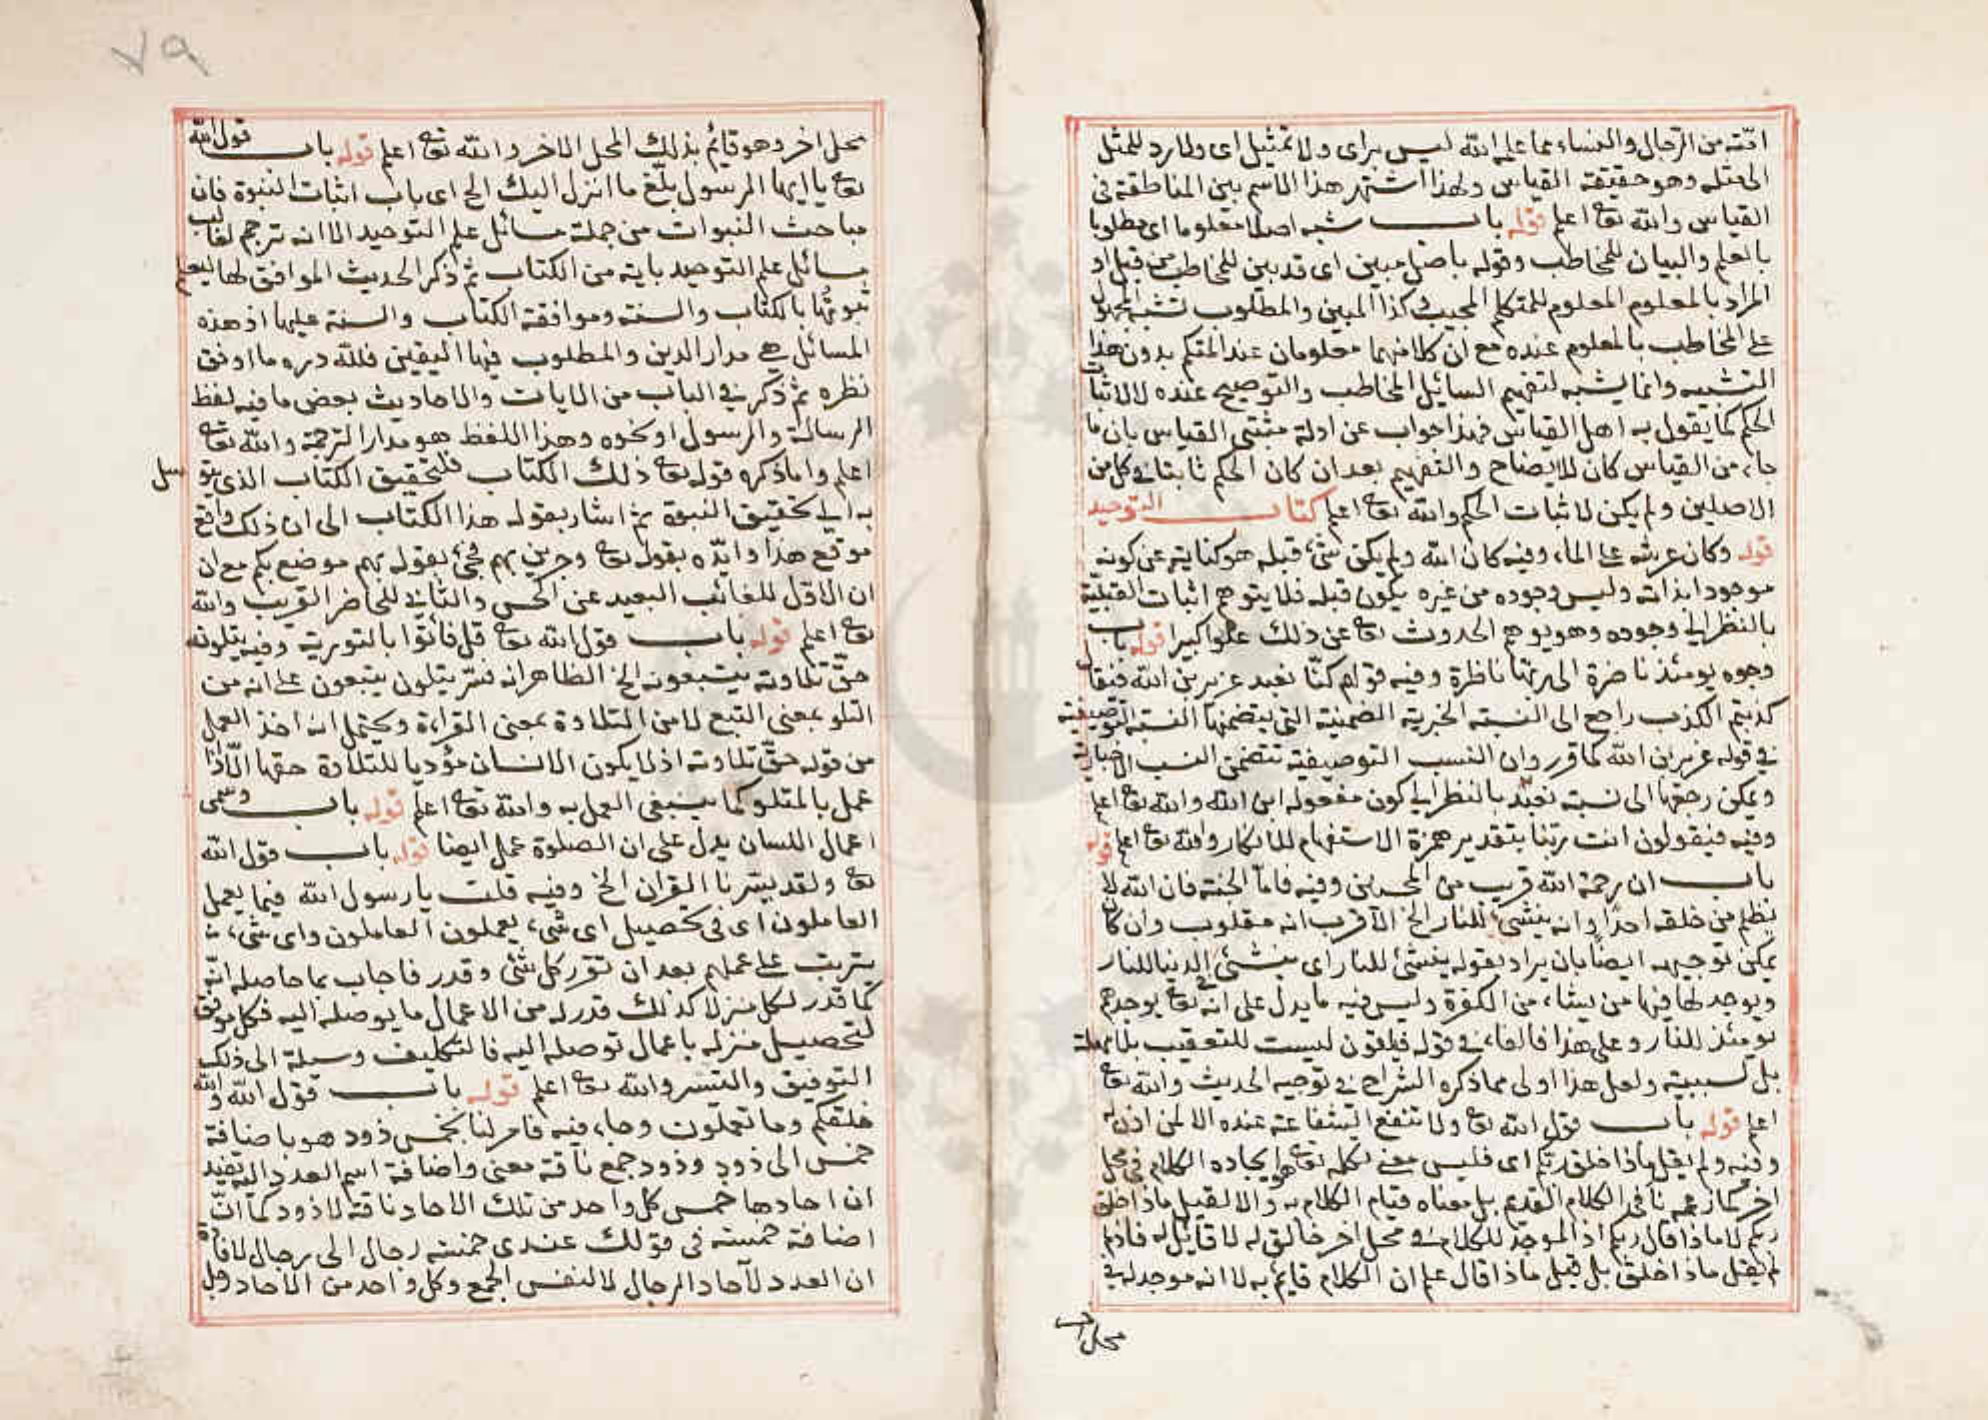 امته من الرجال والنساء مما علمه الله ليس براى ولا تمثيل اى ولا رد للمثل
الى مثله وهو حقيقة القياس ولهذا اشتهر هذا الاسم بين المناطقة فى
القياس والله تعا اعلم قوله باب شبه اصلا معلوما اى مطلوبا
بالعلم والبيان للمخاطب وقوله باصل مبين اى قد بين للمخاطب من قبل او
المراد بالمعلوم المعلوم للمتكلم المجيب كذا المبين والمطلوب تشبيه المجهول
على المخاطب بالمعلوم عنده مع ان كلا منهما معلومان عند المتكلم بدون هذا
التشبيه وانما يشبه لتفهيم السائل المخاطب والتوضيح عنده لا لاثبات
الحكم كما يقول به اهل القياس فهذا جواب عن ادلة مثبتى القياس بان ما
جاء من القياس كان للايضاح والتفهيم بعد ان كان الحكم ثابتا فى كل من
الاصلين ولم يكن لاثبات الحكم والله تعا اعلم كتاب التوحيد
قوله وكان عرشه على الماء وفيه كان الله ولم يكن شئ قبله هو كناية عن كونه
موجودا بذاته وليس وجوده من غيره يكون قبله فلا يتوهم اثبات القبلية
بالنظر الى وجوده وهو يوهم الحدوث تعا عن ذلك علوا كبيرا قوله باب
وجوه يومئذ ناضرة الى ربها ناظرة وفيه قولهم كنا نعبد عزير بن الله فيقال
كذبتم الكذب راجع الى النسبة الخبرية الضمنية التى يتضمنها النسبة التوصيفية
فى قوله عزير بن الله كما قرر وان النسب التوصيفية تتضمن النسب الاخبارية
ويمكن رجعها الى نسبة نعبد بالنظر الى كون مفعوله ابن الله والله تعا اعلم
وفيه فيقولون انت ربنا بتقدير همزة الاستفهام للانكار والله تعا اعلم قوله
باب ان رحمة الله قريب من المحسنين وفيه فاما الجنة فان الله لا
يظلم من خلقه احدا وانه ينشئ للنار الخ الاقرب انه مقلوب وان كان
يمكن توجيهه ايضا بان يراد بقوله ينشئ للنار اى ينشئ فى الدنيا للنار
ويوجد لها فيها من يشاء من الكفرة وليس فيه ما يدل على انه تعا يوجدهم
يومئذ للنار وعلى هذا فالفاء فى قوله فيلقون ليست للتعقيب بلا مهلة
بل لسببية ولعل هذا اولى مما ذكره الشراح فى توجيه الحديث والله تعا
اعلم قوله باب قول الله تعا ولا تنفع الشفاعة عنده الا لمن اذن له
وفيه ولم يقل ماذا خلق ربكم اى فليس معنى تكلمه تعا هو ايجاده الكلام فى محل
اخر كما زعمه نافى الكلام القديم بل معناه قيام الكلام به والا لقيل ماذا خلق
ربكم لا ماذا قال ربكم اذ الموجد للكلام فى محل اخر خالق له لا قائل له فاذ لم
لم يقل ماذا خلق بل قيل ماذا قال علم ان الكلام قايم به لا انه موجد له فى
محل اخر
٧٩
محل اخر وهو قائم بذلك المحل الاخر والله تعا اعلم قوله باب قول الله
تعا يا ايها الرسول بلغ ما انزل اليك الخ اى باب اثبات النبوة فان
مباحث النبوات من جملة مسائل علم التوحيد الا انه ترجم لغالب
مسائل علم التوحيد باية من الكتاب ثم ذكر الحديث الموافق لها ليعلم
ثبوتها بالكتاب والسنة وموافقة الكتاب والسنة عليها اذ هذه
المسائل هى مدار الدين والمطلوب فيها اليقين فلله دره ما ادق
نظره ثم ذكر فى الباب من الايات والاحاديث بعض ما فيه لفظ
الرسالة والرسول او نحوه وهذا اللفظ هو مدار الترجمة والله تعا
اعلم واما ذكره قوله تعا ذلك الكتاب فلتحقيق الكتاب الذى يتوسل
به الى تحقيق النبوة ثم اشار بقوله هذا الكتاب الى ان ذلك واقع
موقع هذا وايده بقوله تعا وجرين بهم فجئ بقوله بهم موضع بكم مع ان
ان الاول للغائب البعيد عن الحس والثانى للحاضر القريب والله
تعا اعلم قوله باب قول الله تعا قل فأتوا بالتورية وفيه يتلونه
حق تلاوته يتبعونه الخ الظاهر انه فسر يتلون يتبعون على انه من
التلو بمعنى التبع لا من التلاوة بمعنى القراءة ويحتمل انه اخذ العمل
من قوله حق تلاوته اذ لا يكون الانسان مؤديا للتلاوة حقها الا اذا
عمل بالمتلو كما ينبغى العمل به والله تعا اعلم قوله باب وسمى
اعمال اللسان يدل على ان الصلوة عمل ايضا قوله باب قول الله
تعا ولقد يسرنا القران الخ وفيه قلت يا رسول الله فيما يعمل
العاملون اى فى تحصيل اى شئ يعملون العاملون واى شئ
يترتب على عملهم بعد ان تقرر كل شئ وقدر فاجاب بما حاصله انه
كما قدر لكل منزلا كذلك قدر له من الاعمال ما يوصله اليه فكل موفق
لتحصيل منزله باعمال توصله اليه فالتكليف وسيلة الى ذلك
التوفيق والتيسر والله تعا اعلم قوله باب قول الله والله
خلقكم وما تعملون وجاء فيه فامر لنا بخمس ذود هو باضافة
خمس الى ذود وذود جمع ناقة معنى واضافة اسم العدد اليه تفيد
ان احادها خمس كل واحد من تلك الاحاد ناقة لا ذود كما ان
اضافة خمسة فى قولك عندى خمسة رجال الى رجال لافادة
ان العدد لآحاد الرجال لا لنفس الجمع وكل واحد من الاحاد رجل